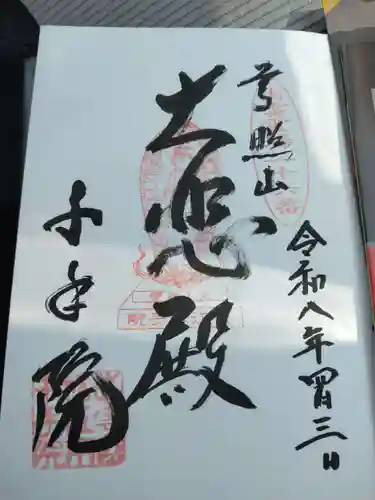 照山
大悲殿
千手院
令和八年四月三日